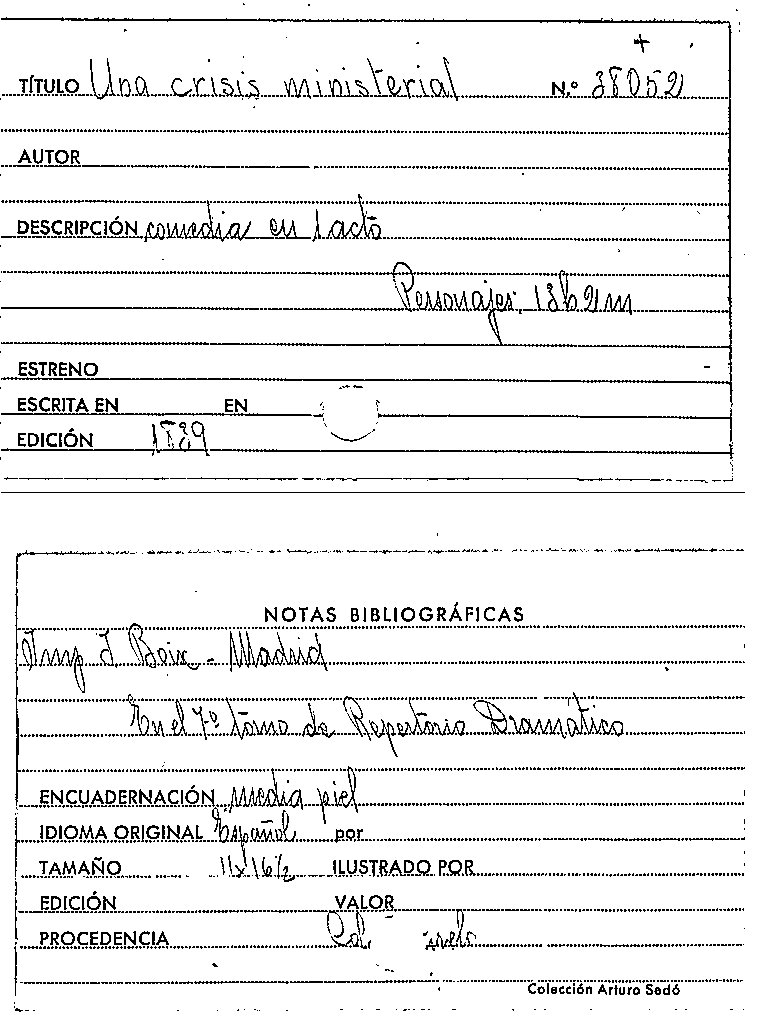 +
TÍTULO Una crisis ministerial N.º 38052
AUTOR
DESCRIPCIÓN comedia en 1 acto
Personajes: 13h 2m
ESTRENO
ESCRITA EN EN
EDICIÓN 1839
NOTAS BIBLIOGRÁFICAS
Imp J Boix - Madrid
En el 7º tomo de Repertorio Dramático
ENCUADERNACIÓN media piel
IDIOMA ORIGINAL Español por
TAMAÑO 11x16½ ILUSTRADO POR
EDICIÓN VALOR
PROCEDENCIA Col.
Colección Arturo Sedó